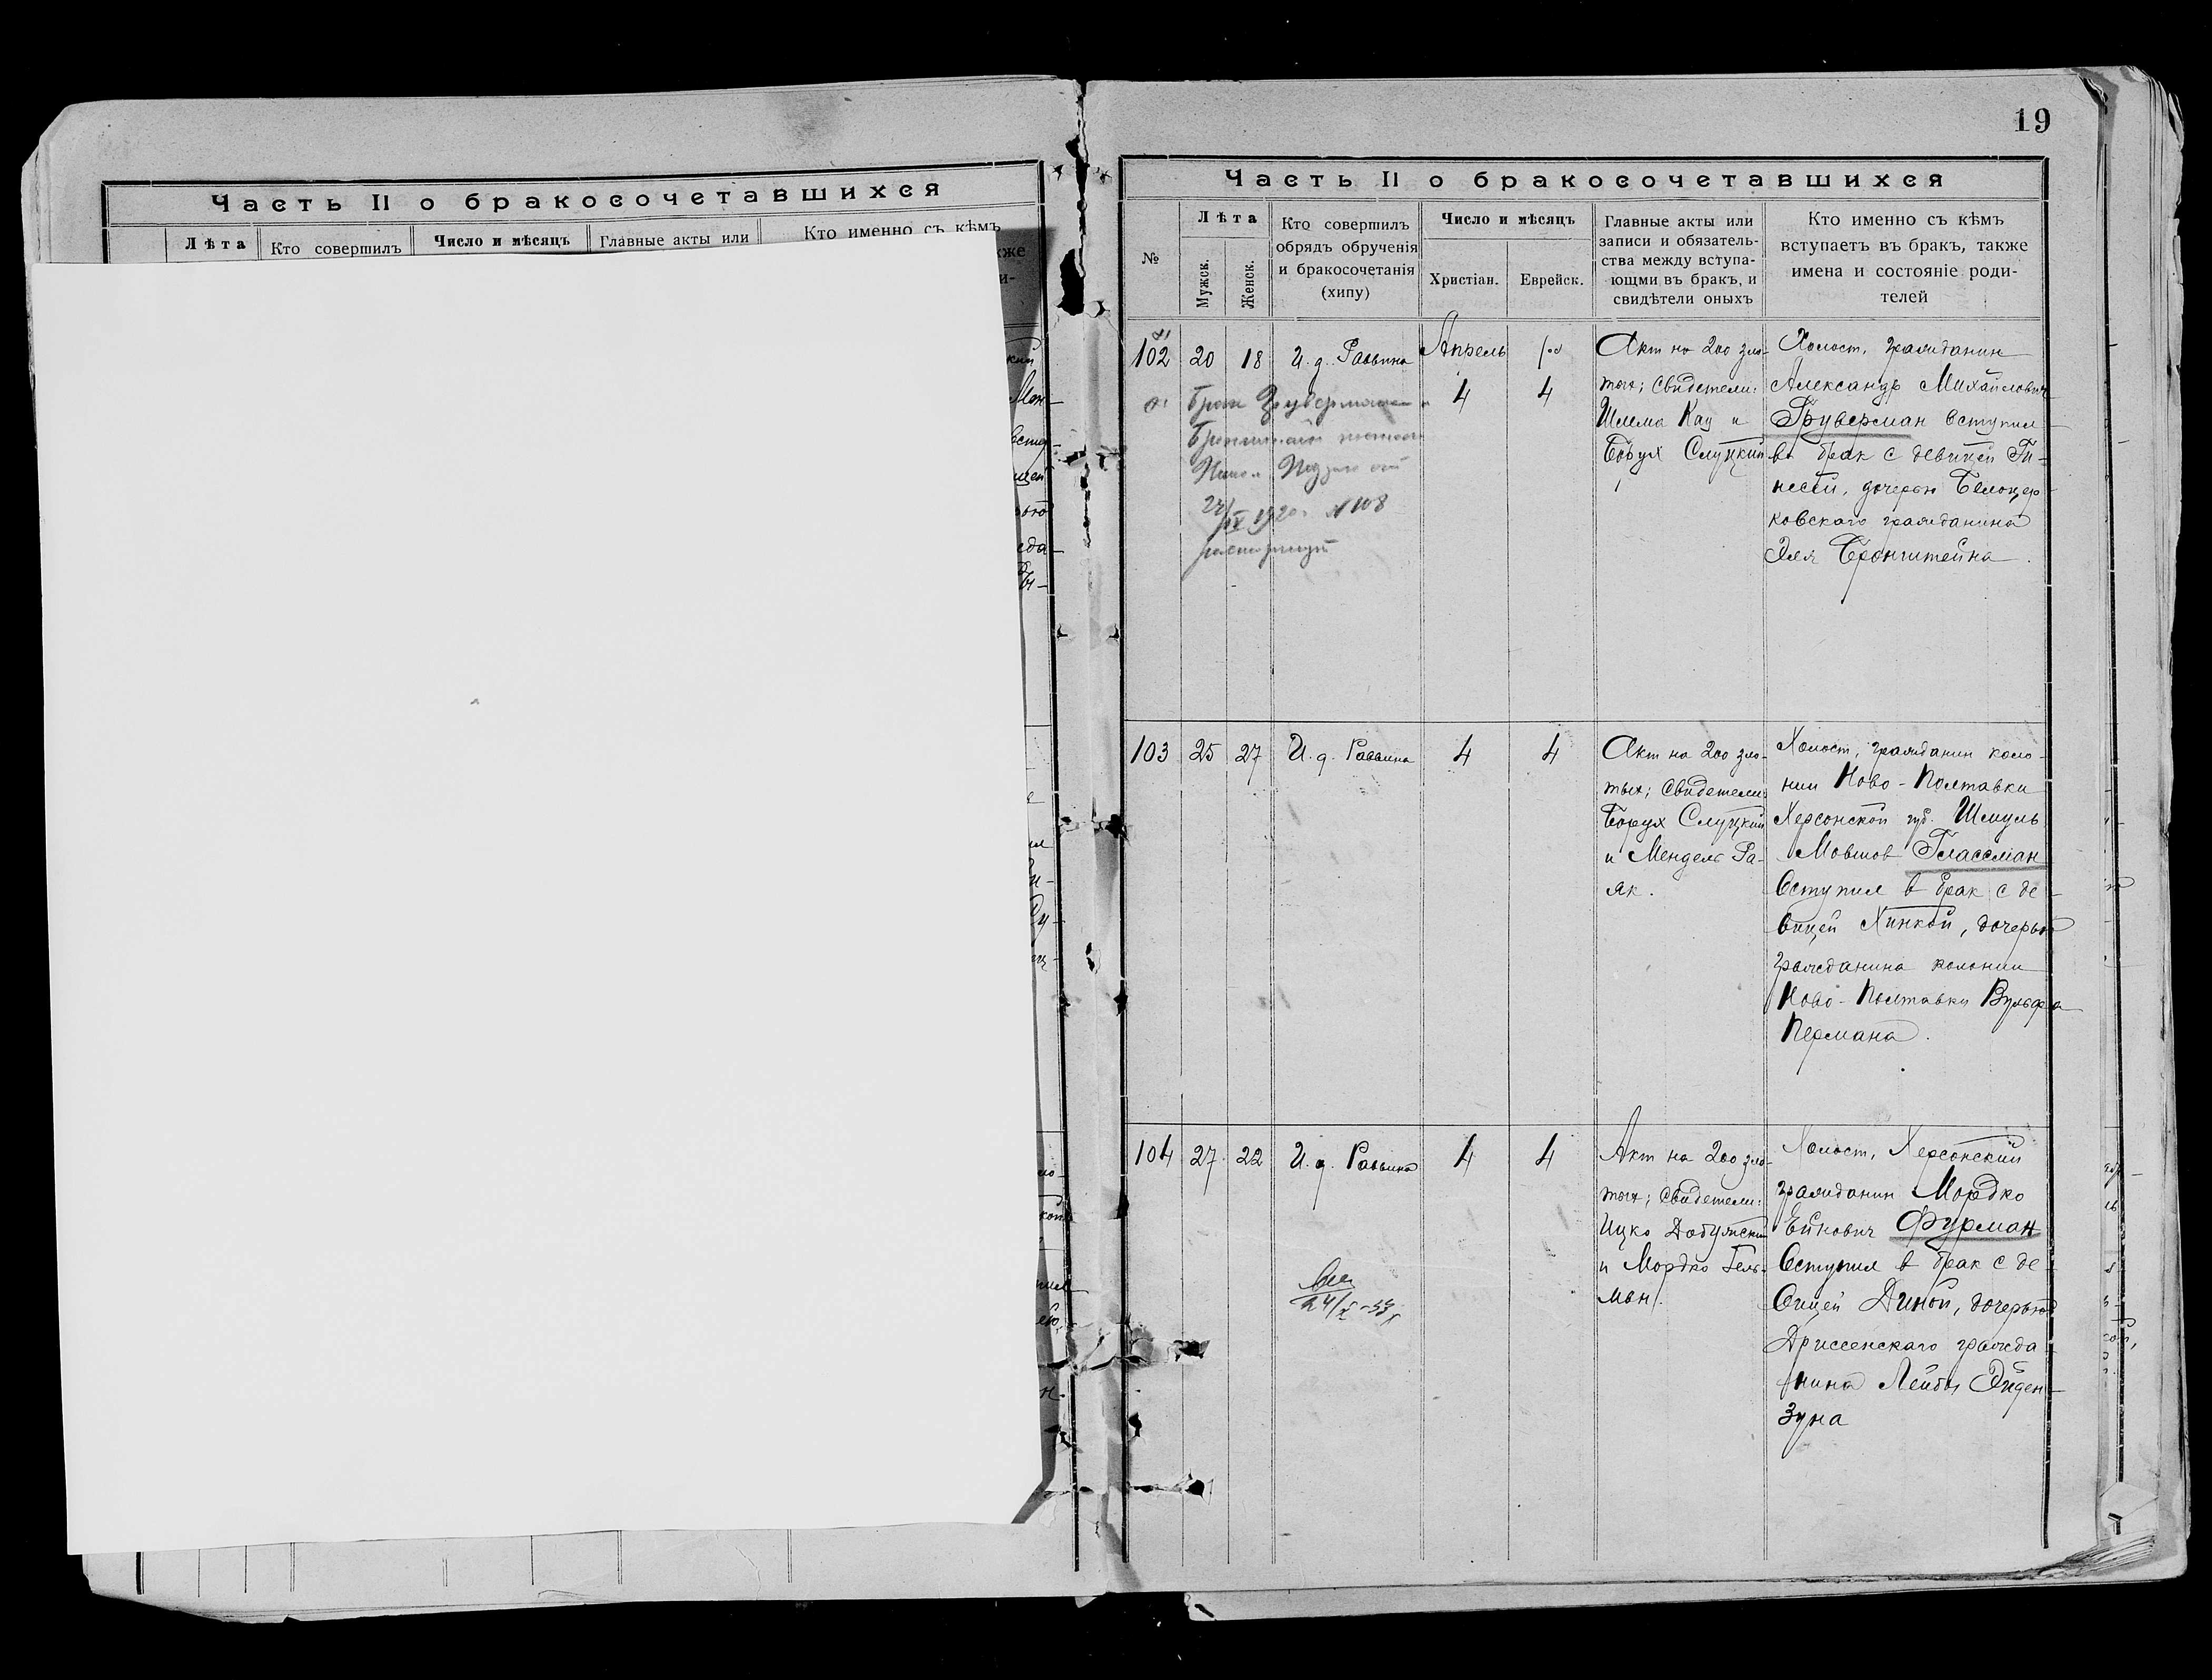 Часть II о бракосочетавшихся
Лѣта
Кто совершилъ
Число и мѣсяцъ
Главные акты или
Кто именно съ кѣмъ
19
Часть II о бракосочетавшихся
№
Лѣта
Мужск.
Женск.
Кто совершилъ
обрядъ обрученія
и бракосочетанія
(хипу)
Число и мѣсяцъ
Христіан.
Еврейск.
Главные акты или
записи и обязатель-
ства между вступа-
ющми въ бракъ, и
свидѣтели оныхъ
Кто именно съ кѣмъ
вступаетъ въ бракъ, также
имена и состояніе роди-
телей
102
20
18
И. д. Раввина
Апрель
4
4
Акт на 200 зло-
тых; Свидетели:
Шлема Кац и
Борух Слуцкий
Холост, гражданин
Александр Михайлович
Груверман вступил
в брак с девицей Ги-
несей, дочерью Белоцер
ковского гражданина
Эля Бронштейна.
Брак
IX 1920 г. №108
103
25
27
И. д. Раввина
4
4
Акт на 200 зло-
тых; Свидетели
Борух Слуцкий
и Мендель Ра-
як.
Холост, гражданин коло-
нии Ново-Полтавки
Херсонской губ. Шмуль
Мовшов Глассман
Вступил в брак с де-
вицей Хинкой, дочерью
гражданина колонии
Ново-Полтавки Вульфа
Пермана.
104
27
22
И. д. Раввина
4
4
Акт на 200 зло-
тых; Свидетели:
Ицко Добужский
и Мордко Гель-
ман.
Холост, Херсонский
гражданин Мордко
Ейнович Фурман
Вступил в брак с де-
вицей Диной, дочерью
Дриссенского гражда
нина Лейбы Эйден-
зуна